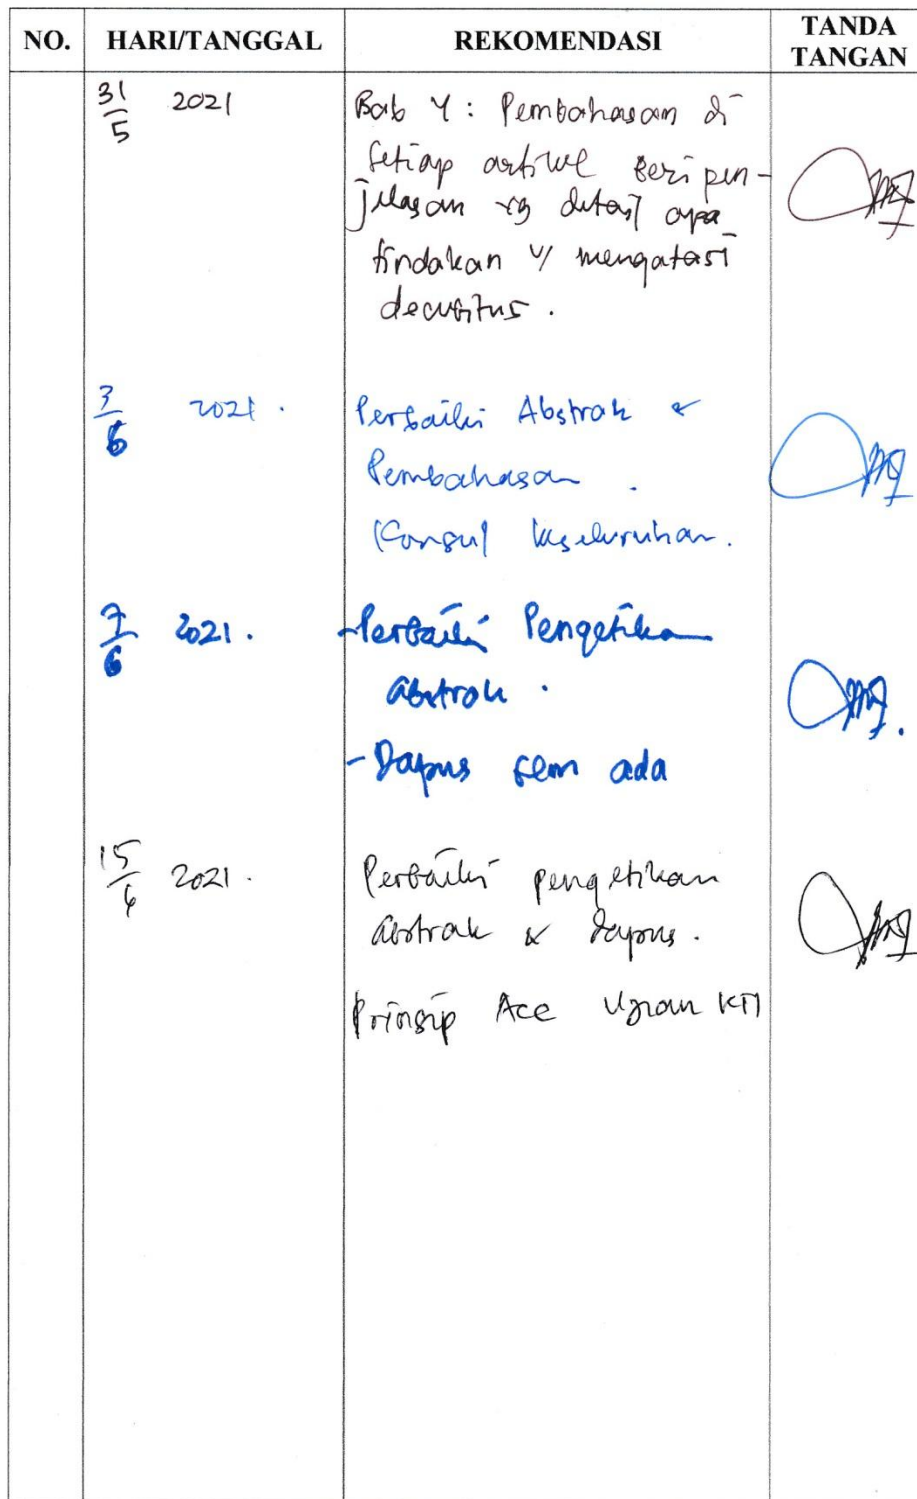 NO. HARI/TANGGAL REKOMENDASI TANDA TANGAN
31/5 2021 Bab 4 : Pembahasan di
setiap artikel beri pen-
jelasan yg detail apa
tindakan u/ mengatasi
decubitus .
3/6 2021 . Perbaiki Abstrak &
Pembahasan .
(Consul keseluruhan.
7/6 2021 . - Perbaiki Pengetikan
abstrak .
- Dapus ada
15/6 2021 . Perbaiki pengetikan
abstrak & dapus .
Prinsip Acc Ujian KTI